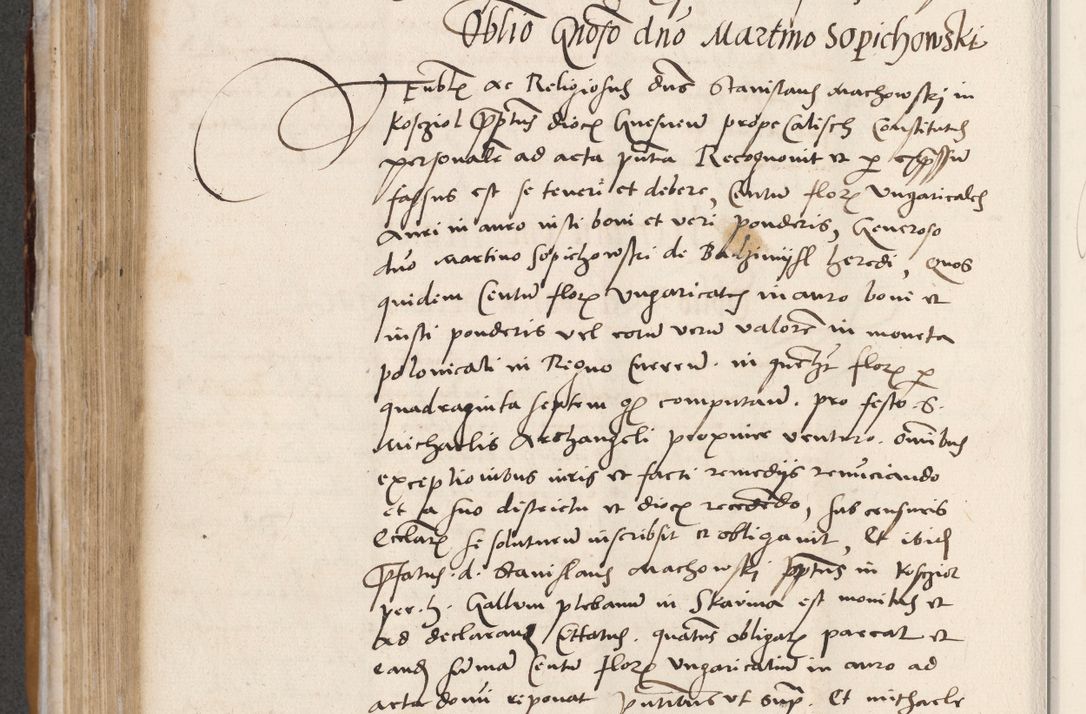 Oblio Gnoso dno Martino Sopichowski
Venblis ac Religiosus dns Stanislaus Machowskj in
Koscziol Ppositus dioc Gnesnen prope Calisch Constitutus
personalr ad acta pntia Recognouit et p expssum
fassus est se teneri et debere, Centum florz Ungaricales
Auri in auro iusti boni et veri ponderis, Generoso
dno Martino Sopichowski de heredi, Quos
quidem Centum florz Ungaricales in auro boni et
iusti ponderis vel eorum verum valorem in moneta
polonicali in Regno Curren. in quemlibet florz p
quadraginta septem gs computan. pro festo S.
Michaelis Archangeli proxime venturo. omnibus
exceptionibus iuris et facti remedijs renunciando
et a suo districtu et dioc recedendo, sub censuris
Ecclesiarz se soluturum inscribsit et obligauit, Et ibidem
Pfatus. d. Stanislaus Machowskj ppositus in Kosczioł
per. h. Gallum plebanum in Skarina est monitus et
ad declarand Cittatus. quatenus obligarz pareat et
eand summam Centum florz Ungaricalium in auro ad
acta domi reponat sub ut supra. Et michaele